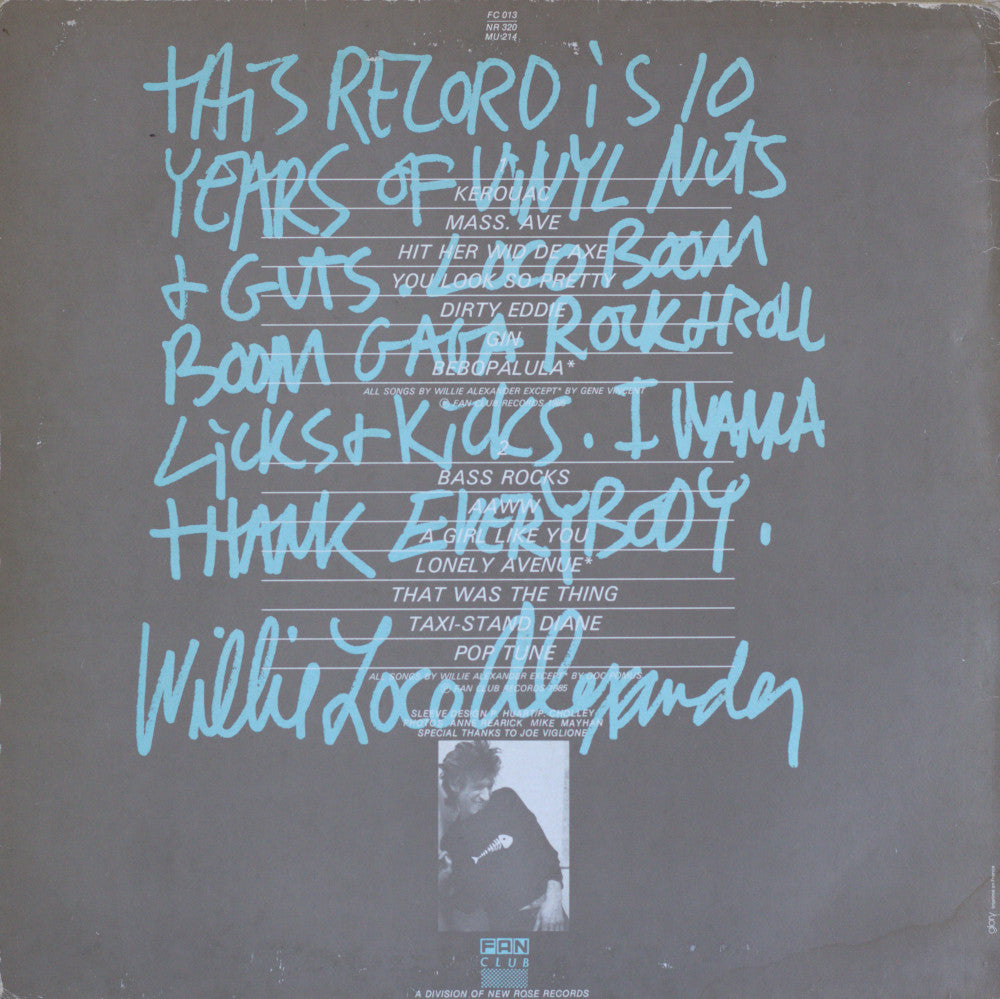 FC 013
NR 320
MU 214
tHiS RECORD iS 10
YEARS OF VINYL NUtS
+ GUtS. LOCO BOOM
BOOM GAGA ROCK+ROLL
LiCKS+KiCKS. I WANNA
tHANK EVERYBODY.
Willie Loco Alexander
1
KEROUAC
MASS. AVE
HIT HER WID DE AXE
YOU LOOK SO PRETTY
DIRTY EDDIE
GIN
BEBOPALULA*
ALL SONGS BY WILLIE ALEXANDER EXCEPT* BY GENE VINCENT
℗ FAN CLUB RECORDS 1985
2
BASS ROCKS
AAWW
A GIRL LIKE YOU
LONELY AVENUE*
THAT WAS THE THING
TAXI-STAND DIANE
POP TUNE
ALL SONGS BY WILLIE ALEXANDER EXCEPT* BY DOC POMUS
℗ FAN CLUB RECORDS 1985
SLEEVE DESIGN P. HUART/P. CHOLLEY
PHOTOS ANNE REARICK MIKE MAYHAN
SPECIAL THANKS TO JOE VIGLIONE
FAN
CLUB
A DIVISION OF NEW ROSE RECORDS
glory